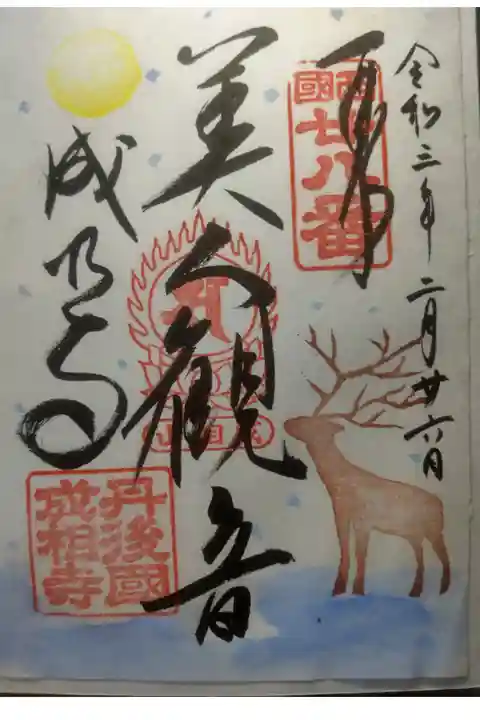 令和三年二月廿六日
奉拝
西國
廿八番
美人観音
成相寺
丹後國
成相寺